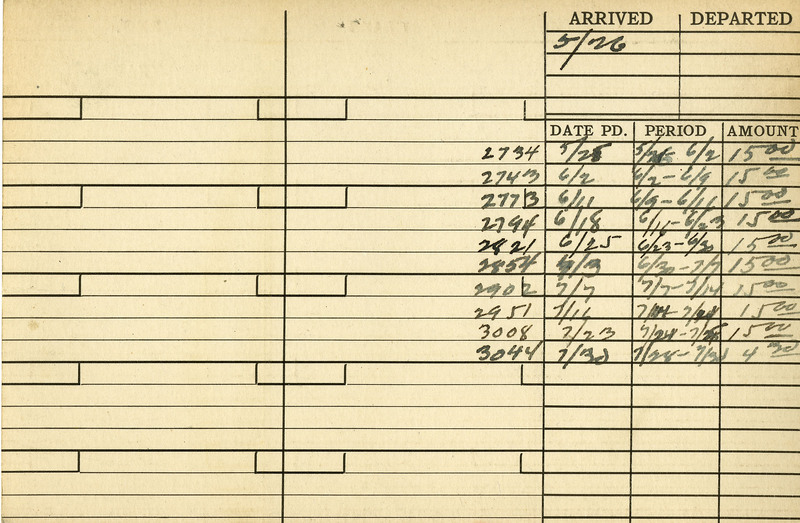 ARRIVED DEPARTED
5/26
DATE PD. PERIOD AMOUNT
2734 5/25 6/2 15 00
2743 6/2 6/2-6/9 15 00
2773 6/11 6/9-6/11 15 00
2794 6/18 6/11-6/23 15 00
2821 6/25 6/23-6/30 15 00
2854 7/3 6/30-7/7 15 00
2902 7/7 7/7-7/14 15 00
2951 7/16 15 00
3008 7/23 15 00
3044 7/30 7/28-7/30 4 30